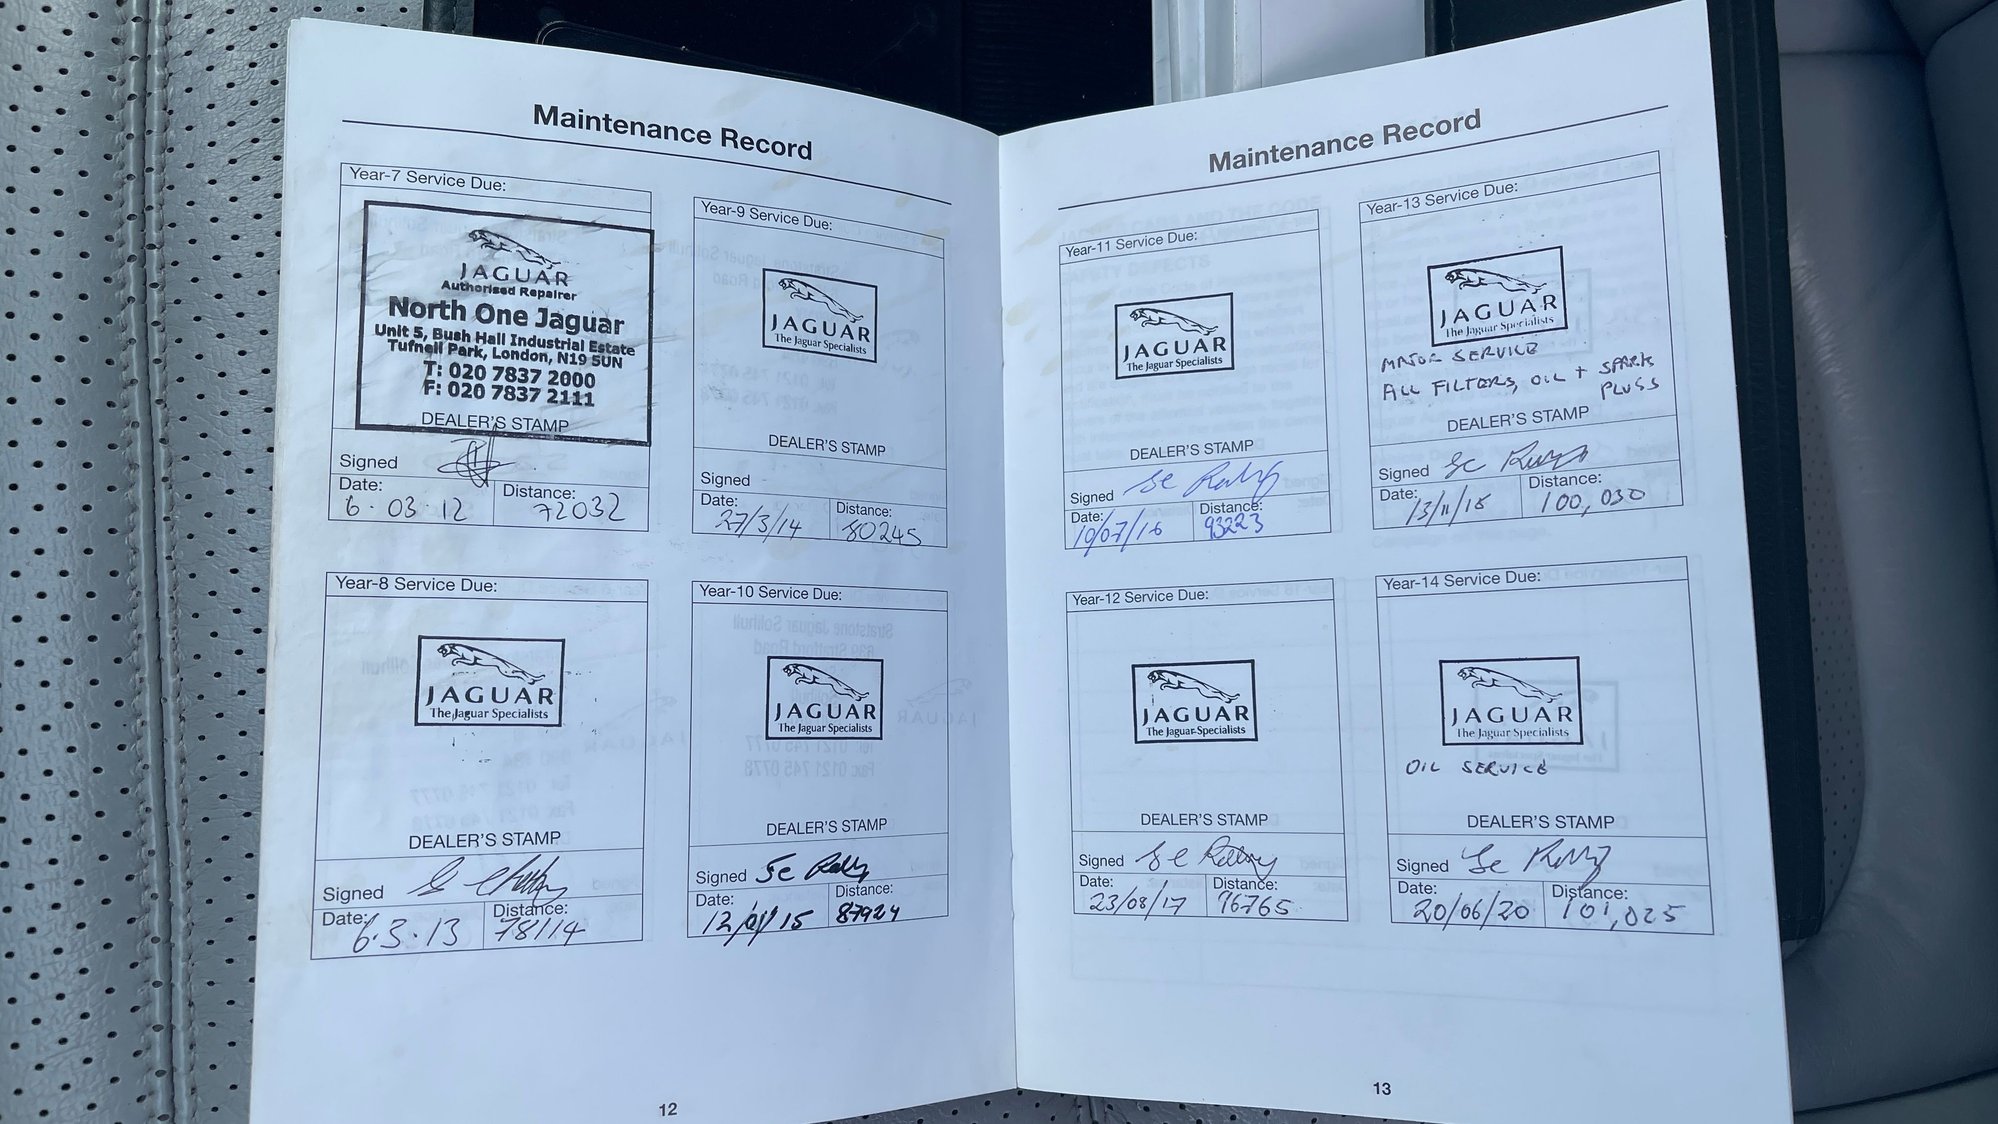 Maintenance Record
Year-7 Service Due:
JAGUAR
Authorised Repairer
North One Jaguar
Unit 5, Bush Hall Industrial Estate
Tufnell Park, London, N19 5UN
T: 020 7837 2000
F: 020 7837 2111
DEALER'S STAMP
Signed
Date: Distance:
6.03.12 72032
Year-8 Service Due:
JAGUAR
The Jaguar Specialists
DEALER'S STAMP
Signed
Date: Distance:
6.3.13 78114
Year-9 Service Due:
JAGUAR
The Jaguar Specialists
DEALER'S STAMP
Signed
Date: Distance:
27/3/14 80245
Year-10 Service Due:
JAGUAR
The Jaguar Specialists
DEALER'S STAMP
Signed
Date: Distance:
87924
12
Maintenance Record
Year-11 Service Due:
JAGUAR
The Jaguar Specialists
DEALER'S STAMP
Signed
Date: Distance:
19/07/16 93223
Year-12 Service Due:
JAGUAR
The Jaguar Specialists
DEALER'S STAMP
Signed
Date: Distance:
23/08/17 96765
Year-13 Service Due:
JAGUAR
The Jaguar Specialists
MAJOR SERVICE
ALL FILTERS, OIL + SPARK
PLUGS
DEALER'S STAMP
Signed
Date: Distance:
13/11/18 100,030
Year-14 Service Due:
JAGUAR
The Jaguar Specialists
OIL SERVICE
DEALER'S STAMP
Signed
Date: Distance:
20/06/20 101,025
13